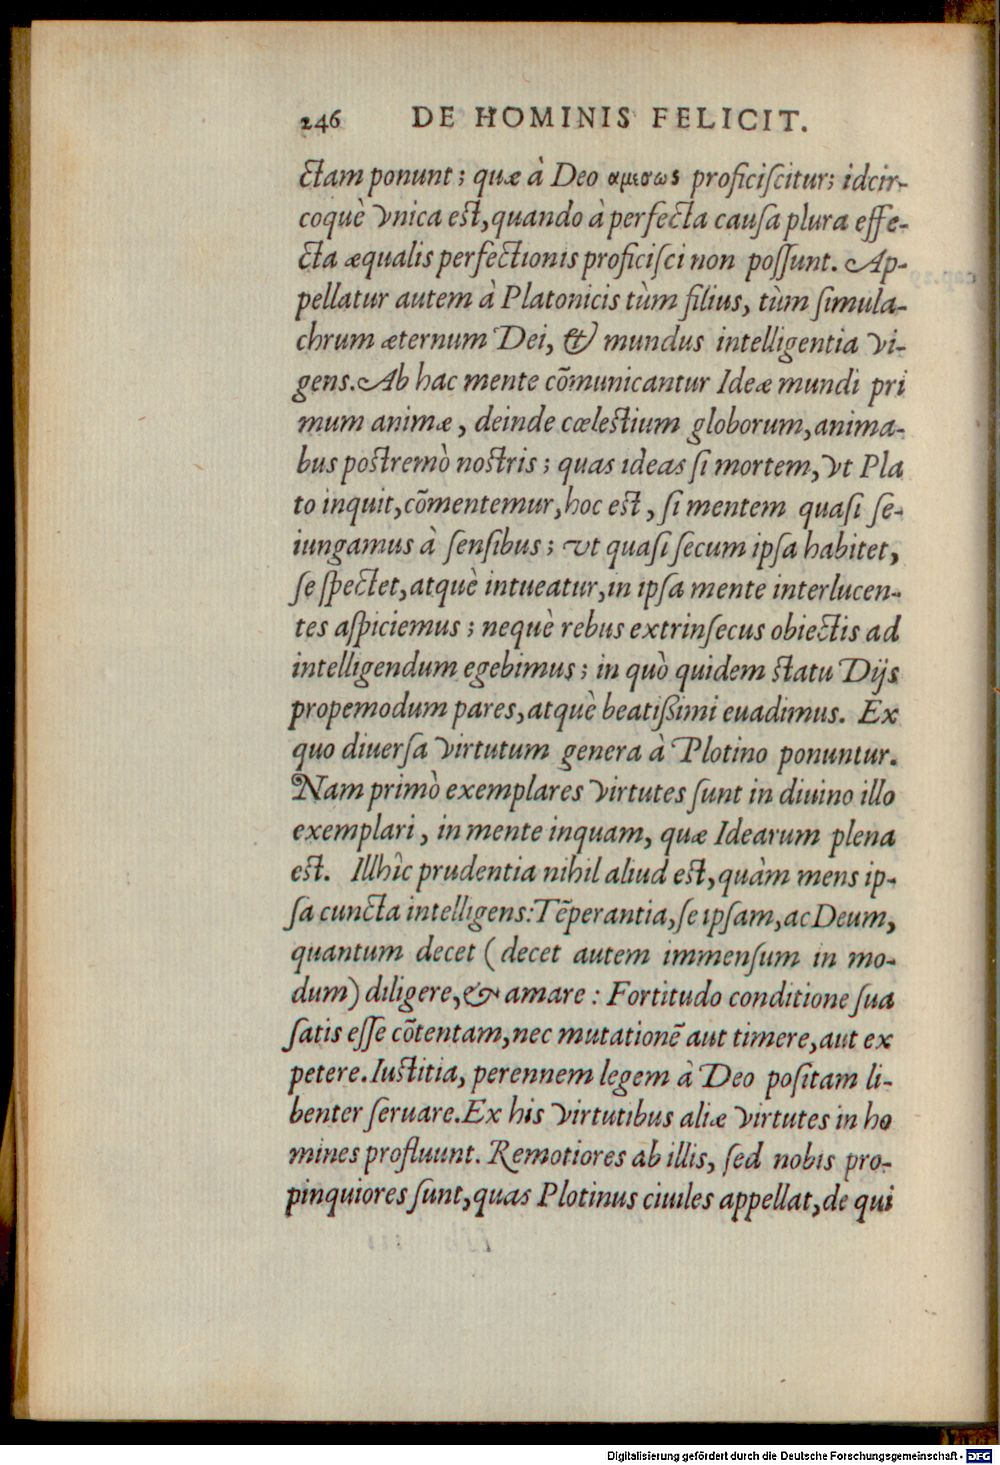 246 DE HOMINIS FELICIT.
ctam ponunt; quæ à Deo αμεσως proficiſcitur; idcir-
coquè vnica est, quando à perfecta cauſa plura effe-
cta æqualis perfectionis proficiſci non poſſunt. Ap-
pellatur autem à Platonicis tùm filius, tùm ſimula-
chrum æternum Dei, & mundus intelligentia vi-
gens. Ab hac mente cõmunicantur Ideæ mundi pri
mum animæ, deinde cœlestium globorum, anima-
bus postremò nostris; quas ideas ſi mortem, vt Pla
to inquit, cõmentemur, hoc est, ſi mentem quaſi ſe-
iungamus à ſenſibus; vt quaſi ſecum ipſa habitet,
ſe ſpectet, atquè intueatur, in ipſa mente interlucen-
tes aſpiciemus; nequè rebus extrinſecus obiectis ad
intelligendum egebimus; in quò quidem statu Dijs
propemodum pares, atquè beatißimi euadimus. Ex
quo diuerſa virtutum genera à Plotino ponuntur.
Nam primò exemplares virtutes ſunt in diuino illo
exemplari, in mente inquam, quæ Idearum plena
est. Illhìc prudentia nihil aliud est, quàm mens ip-
ſa cuncta intelligens: Tẽperantia, ſe ipſam, ac Deum,
quantum decet (decet autem immenſum in mo-
dum) diligere, & amare: Fortitudo conditione ſua
ſatis eſſe cõtentam, nec mutationẽ aut timere, aut ex
petere. Iustitia, perennem legem à Deo poſitam li-
benter ſeruare. Ex his virtutibus aliæ virtutes in ho
mines profluunt. Remotiores ab illis, ſed nobis pro-
pinquiores ſunt, quas Plotinus ciuiles appellat, de qui
Digitalisierung gefördert durch die Deutsche Forschungsgemeinschaft - DFG